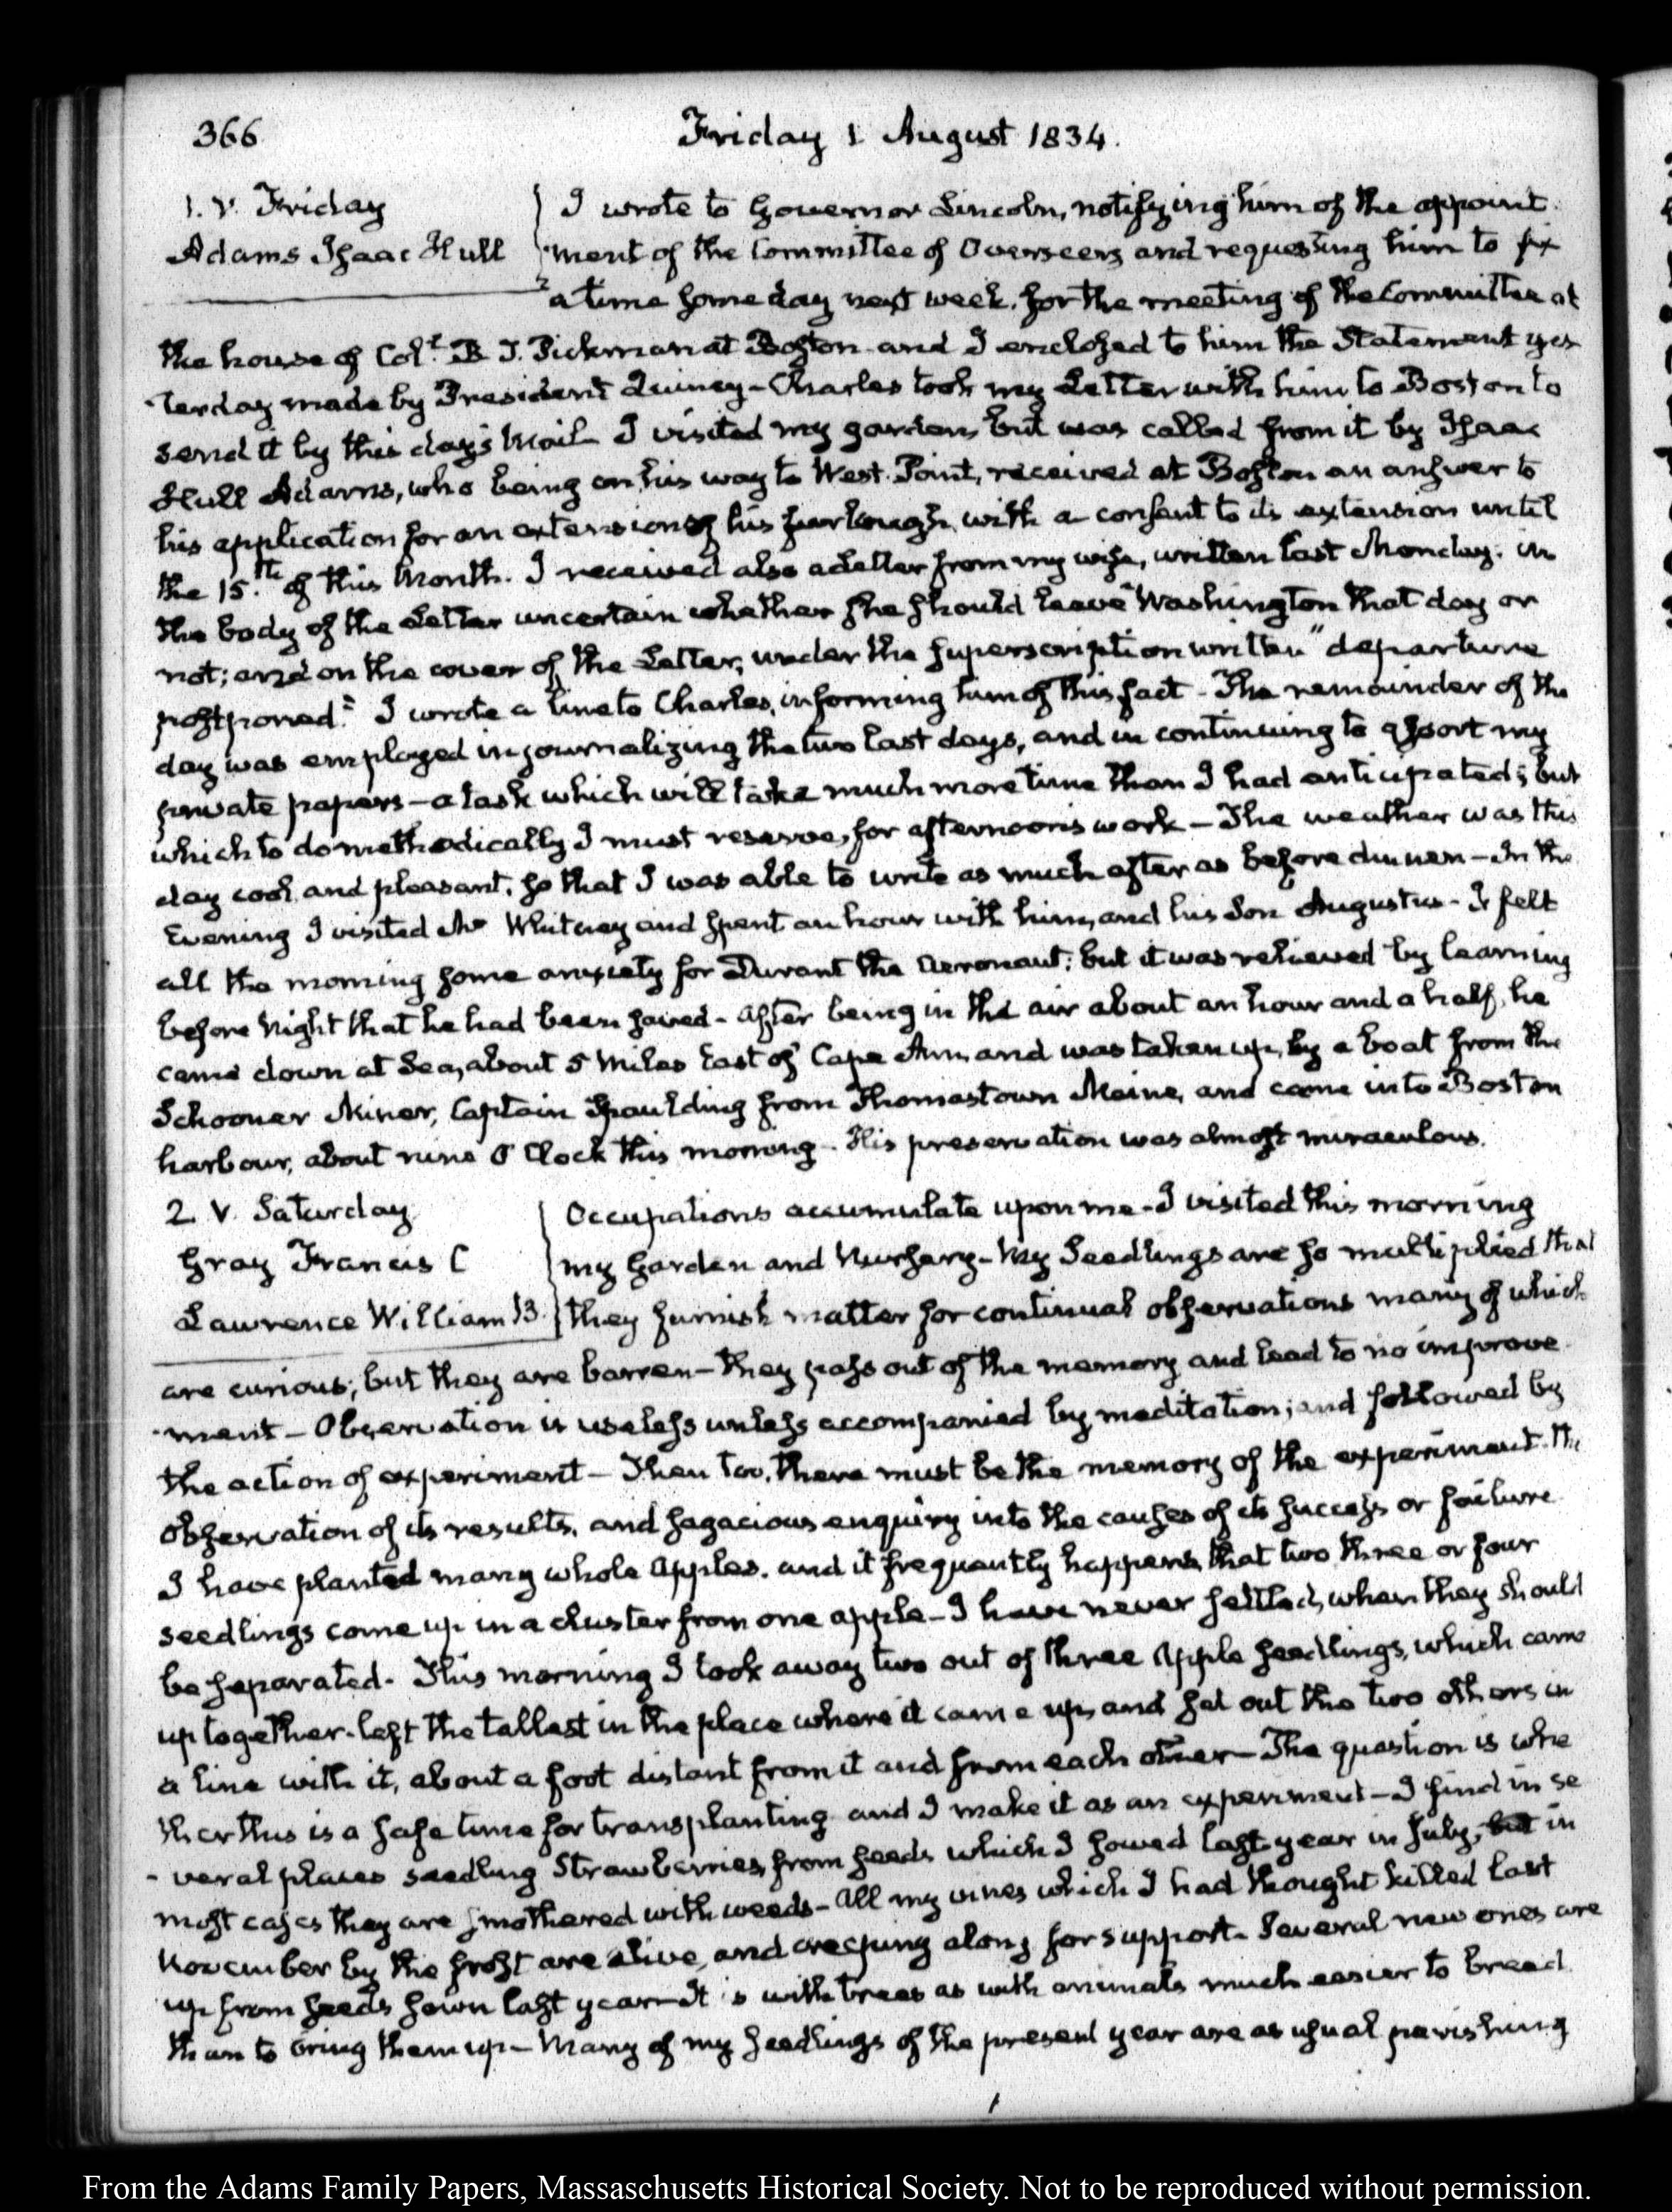 366
Friday 1 August 1834.
1. V. Friday
Adams Isaac Hull
I wrote to Governor Lincoln, notifying him of the appoint
ment of the Committee of Overseers and requesting him to fix
a time some day next week, for the meeting of the Committee at
the house of Colt. B. T. Pickman at Boston and I enclosed to him the Statement yes
terday made by President Quincy - Charles took my Letter with him to Boston to
send it by this day's Mail - I visited my garden, but was called from it by Isaac
Hull Adams, who being on his way to West-Point, received at Boston an answer to
his application for an extension of his furlough, with a consent to its extension until
the 15.th of this Month. I received also a Letter from my wife, written last Monday: in
the body of the Letter uncertain whether she should leave Washington that day or
not; and on the cover of the Letter, under the superscription written "departure
postponed." I wrote a line to Charles, informing him of this fact - The remainder of the
day was employed in journalizing the two last days, and in continuing to assort my
private papers - a task which will take much more time than I had anticipated; but
which to do methodically I must reserve, for afternoon's work - The weather was this
day cool and pleasant, so that I was able to write as much after as before dinner - In the
Evening I visited Mr Whitney and spent an hour with him, and his Son Augustus - I felt
all the morning some anxiety for Durant the Aeronaut; but it was relieved by learning
before Night that he had been saved - After being in the air about an hour and a half, he
came down at Sea, about 5 Miles East of Cape Ann, and was taken up, by a boat from the
Schooner Miner, Captain Spaulding from Thomastown Maine, and came into Boston
harbour, about nine O'Clock this morning - His preservation was almost miraculous.
2. V. Saturday
Gray Francis C
Lawrence William B.
Occupations accumulate upon me - I visited this morning
my Garden and Nursery - My Seedlings are so multiplied that
they furnish matter for continual observations many of which
are curious; but they are barren - they pass out of the memory and lead to no improve
ment - Observation is useless unless accompanied by meditation; and followed by
the action of experiment - Then too, there must be the memory of the experiment. The
observation of its results, and sagacious enquiry into the causes of its success or failure
I have planted many whole Apples, and it frequently happens that two three or four
seedlings come up in a cluster from one apple - I have never settled, when they should
be separated. This morning I took away two out of three Apple seedlings, which came
up together - left the tallest in the place where it came up, and set out the two others in
a line with it, about a foot distant from it and from each other - The question is whe
ther this is a safe time for transplanting and I make it as an experiment - I find in se
veral places seedling Strawberries, from seeds which I sowed last year in July, in
most cases they are smothered with weeds - All my vines which I had thought killed last
November by the frost are alive, and creeping along for support. Several new ones are
up from seeds sown last year - It is with trees as with animals much easier to breed
than to bring them up - Many of my seedlings of the present year are as usual perishing
From the Adams Family Papers, Massachusetts Historical Society. Not to be reproduced without permission.